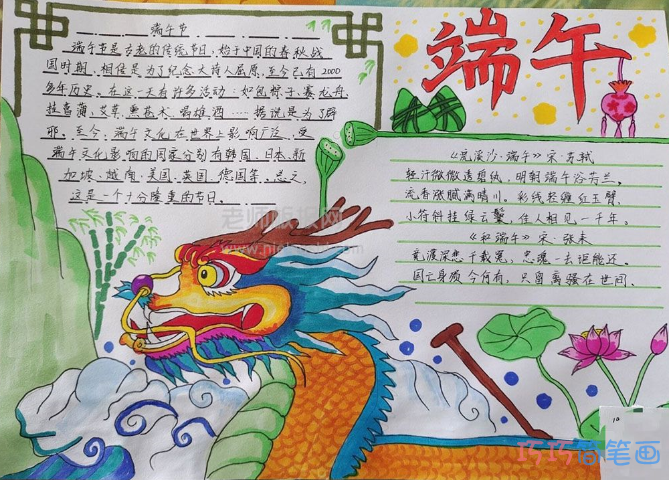 端午节
端午节是古老的传统节日，始于中国的春秋战
国时期，相传是为了纪念大诗人屈原，至今已有2000
多年历史。在这一天有许多活动：如包粽子、赛龙舟、
挂菖蒲、艾草、熏苍术、喝雄酒……据说是为了辟
邪。至今，端午文化在世界上影响广泛，受
端午文化影响的国家分别有韩国、日本、新
加坡、越南、美国、英国、德国等。总之，
这是一个十分隆重的节日。
端午
《浣溪沙·端午》宋·苏轼
轻汗微微透碧纨，明朝端午浴芳兰。
流香涨腻满晴川。彩线轻缠红玉臂，
小符斜挂绿云鬟，佳人相见一千年。
《和端午》宋·张耒
竞渡深悲千载冤，忠魂一去讵能还。
国亡身殒今何有，只留离骚在世间。
老师板报网
巧巧简笔画